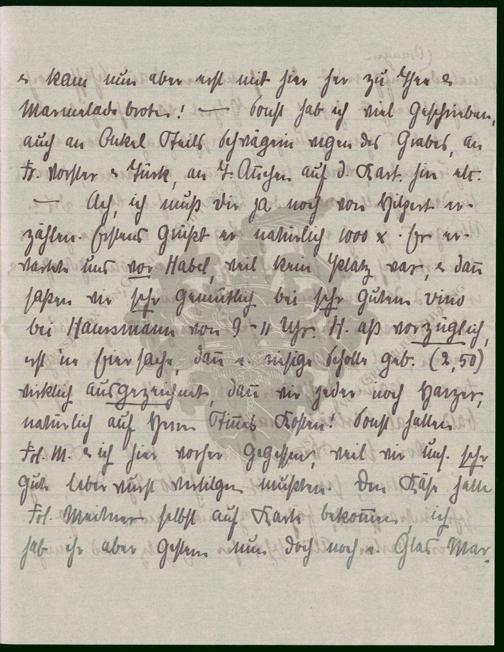 & kam nun aber erst mit hier her zu Thee &
Marmeladebroten! — Sonst hab ich viel geschrieben,
auch an Onkel Steils Schwägerin wegen des Grabes, an
Fr. Vorster & Türk, an T. Ännchen auf d. Kart. hin etc.
— Ach, ich muß Dir ja noch von Hilpert er-
zählen. Erstens grüßt er natürlich 1000 x. Er er-
wartete uns vor Habel, weil kein Platz war, & dann
saßen wir sehr gemütlich bei sehr gutem Vino
bei Haussmann von 9-11 Uhr. H. aß vorzüglich,
erst ne Eiersache, dann e. riesige Scholle geb. (2,50)
wirklich ausgezeichnet, dann wir jeder noch Harzer,
natürlich auf Herrn Kosten! Sonst hatten
Frl. M. & ich hier vorher gegessen, weil wir uns. sehr
gute Leberwurst vertilgen mußten. Den Käse hatte
Frl. Meitner selbst auf Karte bekommen, ich
hab ihr aber gestern nun doch noch e. Glas Mar-